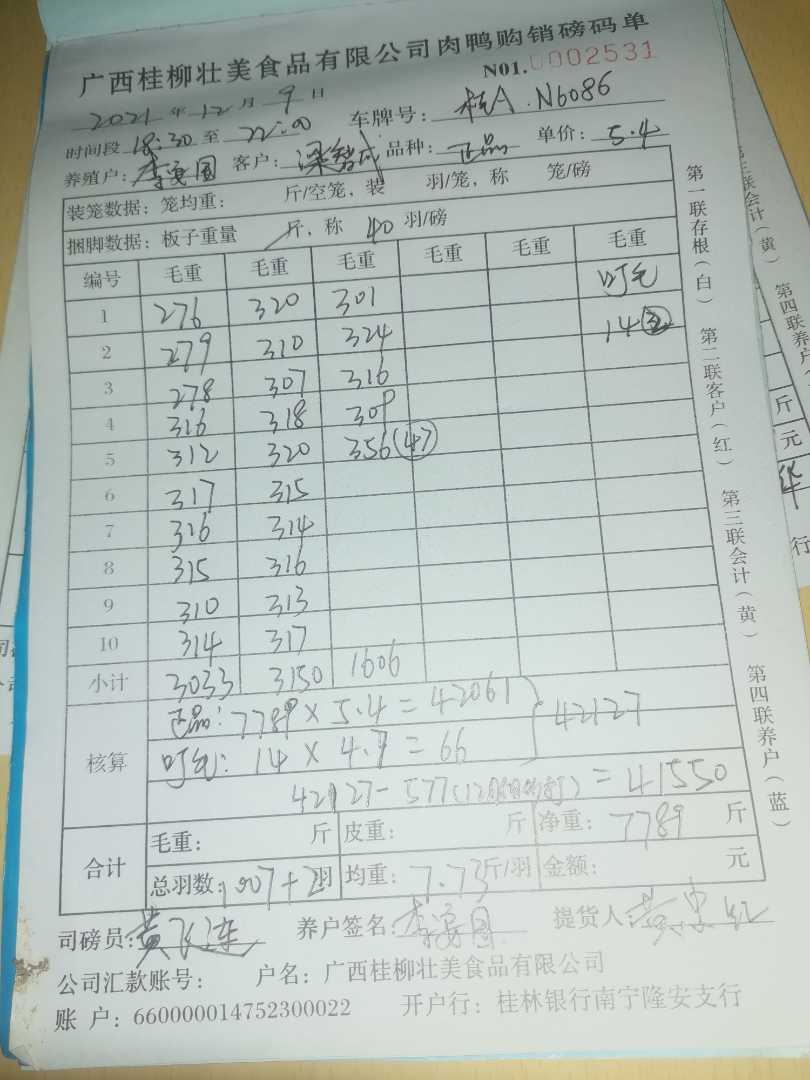 广西桂柳壮美食品有限公司肉鸭购销磅码单
NO1.0002531
2021年12月9日 车牌号：桂A.N6086
时间段18:30至22:00
养殖户：李 国 客户：梁智成 品种：正品 单价：5.4
装笼数据：笼均重： 斤/空笼，装 羽/笼，称 笼/磅
捆脚数据：板子重量 斤，称 40 羽/磅
编号 毛重 毛重 毛重 毛重 毛重 毛重
1 276 320 301 叮毛
2 279 310 324 14②
3 278 307 316
4 316 318 309
5 312 320 356(47)
6 317 315
7 316 314
8 315 316
9 310 313
10 314 317
小计 3033 3150 1606
核算 正品：7789×5.4=42061
叮毛：14×4.7=66 42127
42127-577(12月 )=41550
合计 毛重： 斤 皮重： 斤 净重：7789 斤
总羽数：1007+2羽 均重：7.73斤/羽 金额： 元
司磅员：黄飞连 养户签名：李 国 提货人：黄 红
公司汇款账号： 户名：广西桂柳壮美食品有限公司
账 户：660000014752300022 开户行：桂林银行南宁隆安支行
第一联存根(白) 第二联客户(红) 第三联会计(黄) 第四联养户(蓝)
第三联会计(黄) 第四联养户
斤
元
行